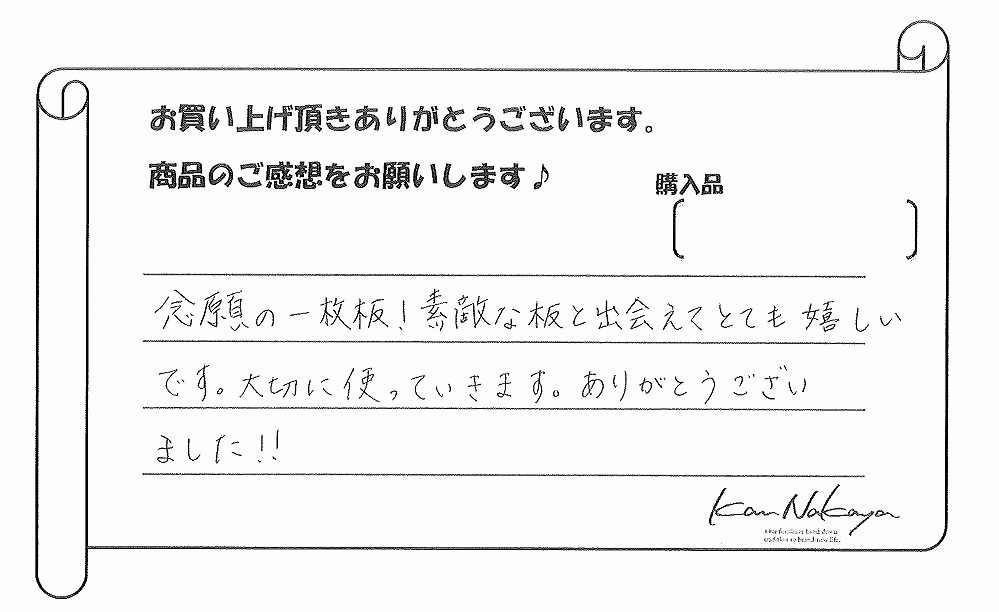 お買い上げ頂きありがとうございます。
商品のご感想をお願いします♪
購入品
念願の一枚板!素敵な板と出会えてとても嬉しい
です。大切に使っていきます。ありがとうござい
ました!!
Kan Nakaya